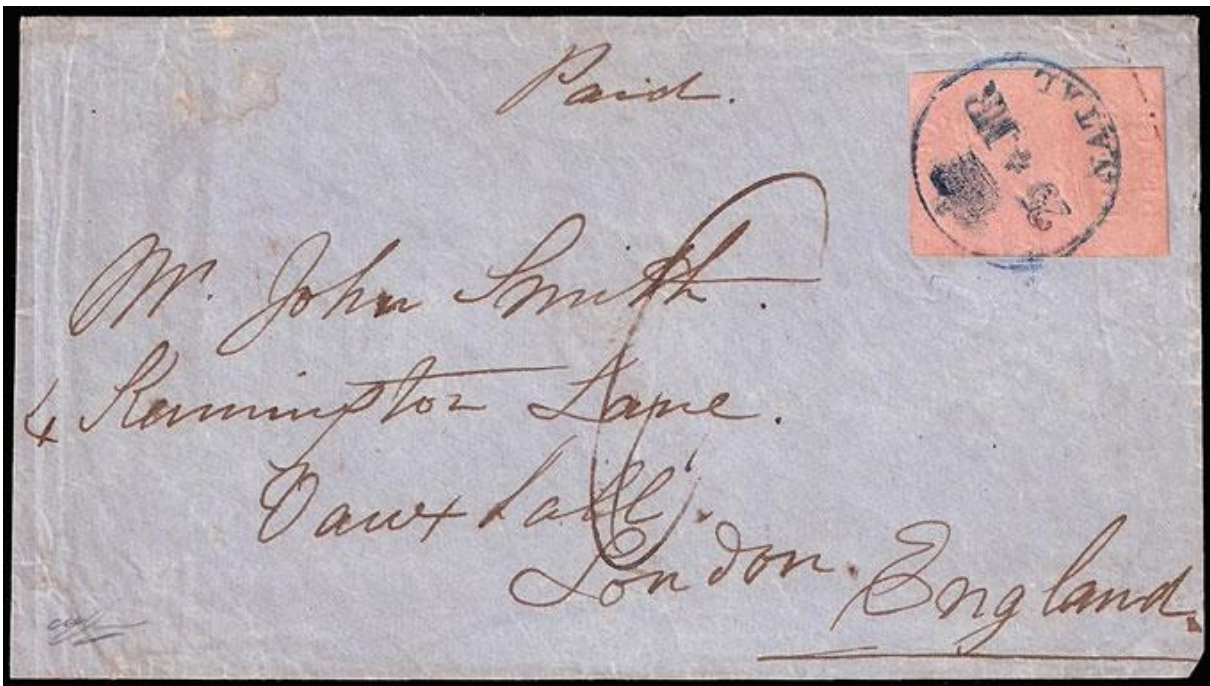 Paid.
NATAL
Mr. John Smith.
4 Kennington Lane.
Vauxhall.
London. England.
6